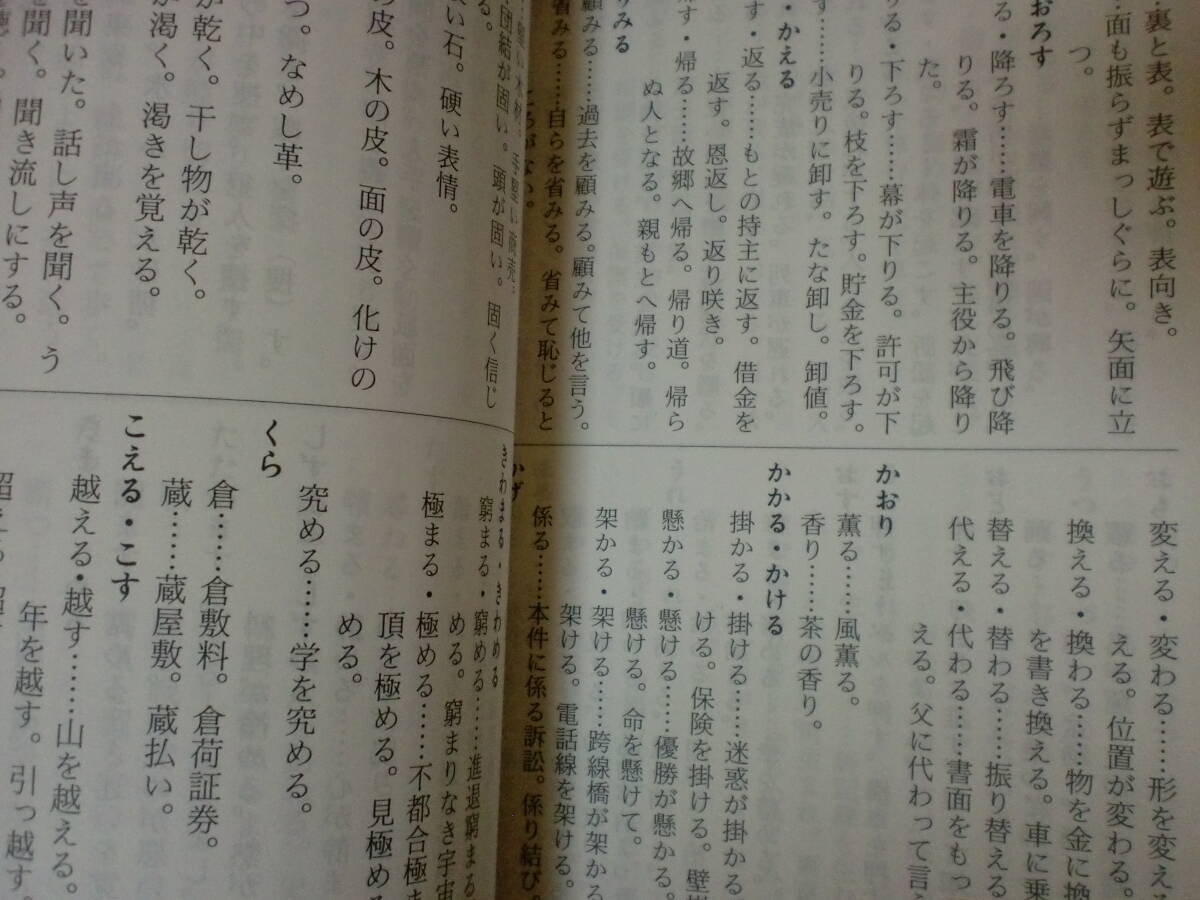 裏と表。表で遊ぶ。表向き。
面も振らずまっしぐらに。矢面に立
つ。
おろす
る・降ろす……電車を降りる。飛び降
りる。霜が降りる。主役から降り
た。
る・下ろす……幕が下りる。許可が下
りる。枝を下ろす。貯金を下ろす。
す……小売りに卸す。たな卸し。卸値。
・かえる
す・返る……もとの持主に返す。借金を
返す。恩返し。返り咲き。
す・帰る……故郷へ帰る。帰り道。帰ら
ぬ人となる。親もとへ帰す。
りみる
顧みる……過去を顧みる。顧みて他を言う。
省みる……自らを省みる。省みて恥じると
ころがない。
変える・変わる……形を変え
える。位置が変わる。
換える・換わる……物を金に換
を書き換える。車に乗
替える・替わる……振り替える
代える・代わる……書面をもっ
える。父に代わって言
かおり
薫る……風薫る。
香り……茶の香り。
かかる・かける
掛かる・掛ける……迷惑が掛かる
ける。保険を掛ける。壁
懸かる・懸ける……優勝が懸かる
懸ける。命を懸けて。
架かる・架ける……跨線橋が架かる
架ける。電話線を架ける。
係る……本件に係る訴訟。係り結び。
かげ
堅い木材。手堅い商売。
団結が固い。頭が固い。固く信じ
る。
い石。硬い表情。
の皮。木の皮。面の皮。化けの
つ。なめし革。
が乾く。干し物が乾く。
が渇く。渇きを覚える。
を聞いた。話し声を聞く。う
を聞く。聞き流しにする。
きわまる・きわめる
窮まる・窮める……進退窮まる
める。窮まりなき宇宙
極まる・極める……不都合極ま
頂を極める。見極める
める。
究める……学を究める。
くら
倉……倉敷料。倉荷証券。
蔵……蔵屋敷。蔵払い。
こえる・こす
越える・越す……山を越える。
年を越す。引っ越す。